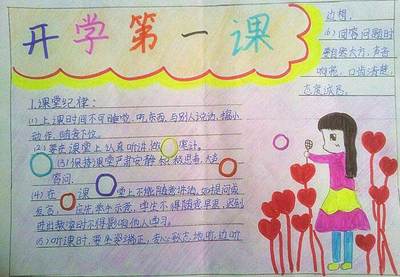 开学第一课
1.课堂纪律:
(1)上课时间不可睡觉,听东西,与别人说话,搞小
动作,随意下位。
(2)要在课堂上认真听讲,做笔记。
(3)保持课堂严肃安静,积极思考,大声
答问。
(4)在课堂上不能随意讲话,如提问或
发言,应先举手示意,学生不得随意早退,迟到
进出教室时不得影响他人学习。
(5)听课时,要坐姿端正,专心致志地听,边听
边想。
(6)回答问题时
要自然大方,声音
响亮,口齿清楚,
态度诚恳。